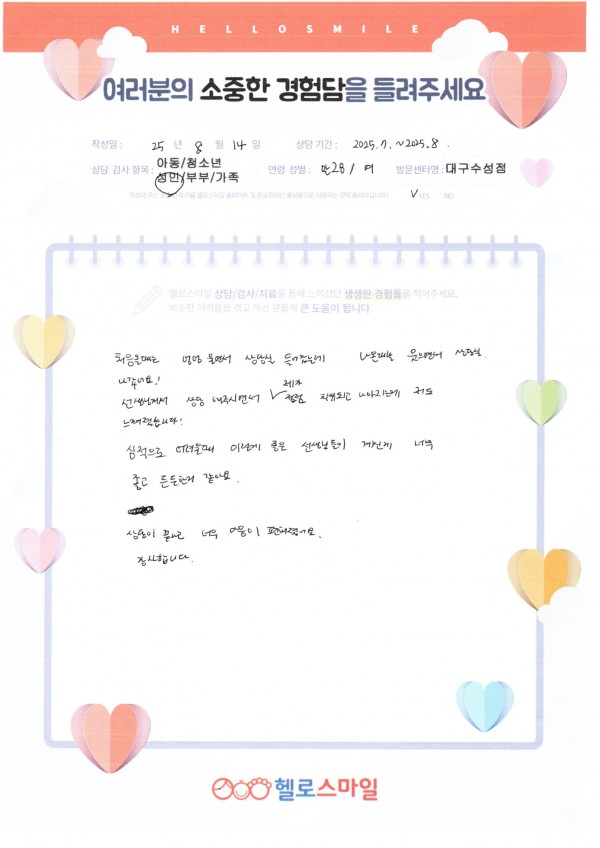 HELLOSMILE
여러분의 소중한 경험담을 들려주세요
작성일 : 25 년 8 월 14 일 상담 기간 : 2025.7. ~ 2025.8.
상담 검사 항목 : 아동/청소년 성인/부부/가족 연령 성별 : 만28 / 여 방문센터명 : 대구수성점
YES NO
헬로스마일 상담/검사/치료을 통해 느끼셨던 생생한 경험들을 적어주세요.
비슷한 어려움을 겪고 계신 분들께 큰 도움이 됩니다.
처음올때는 엉엉 울면서 상담실 들어갔는데 나올때는 웃으면서 상담실
나갔어요!
선생님께서 상담 해주시면서 제가 점점 치유되고 나아지는게
느껴졌습니다!
심적으로 어려울때 이렇게 좋은 선생님들이 계신게 너무
좋고 든든한거 같아요.
상담이 끝나고 너무 마음이 편해졌어요.
감사합니다.
헬로스마일